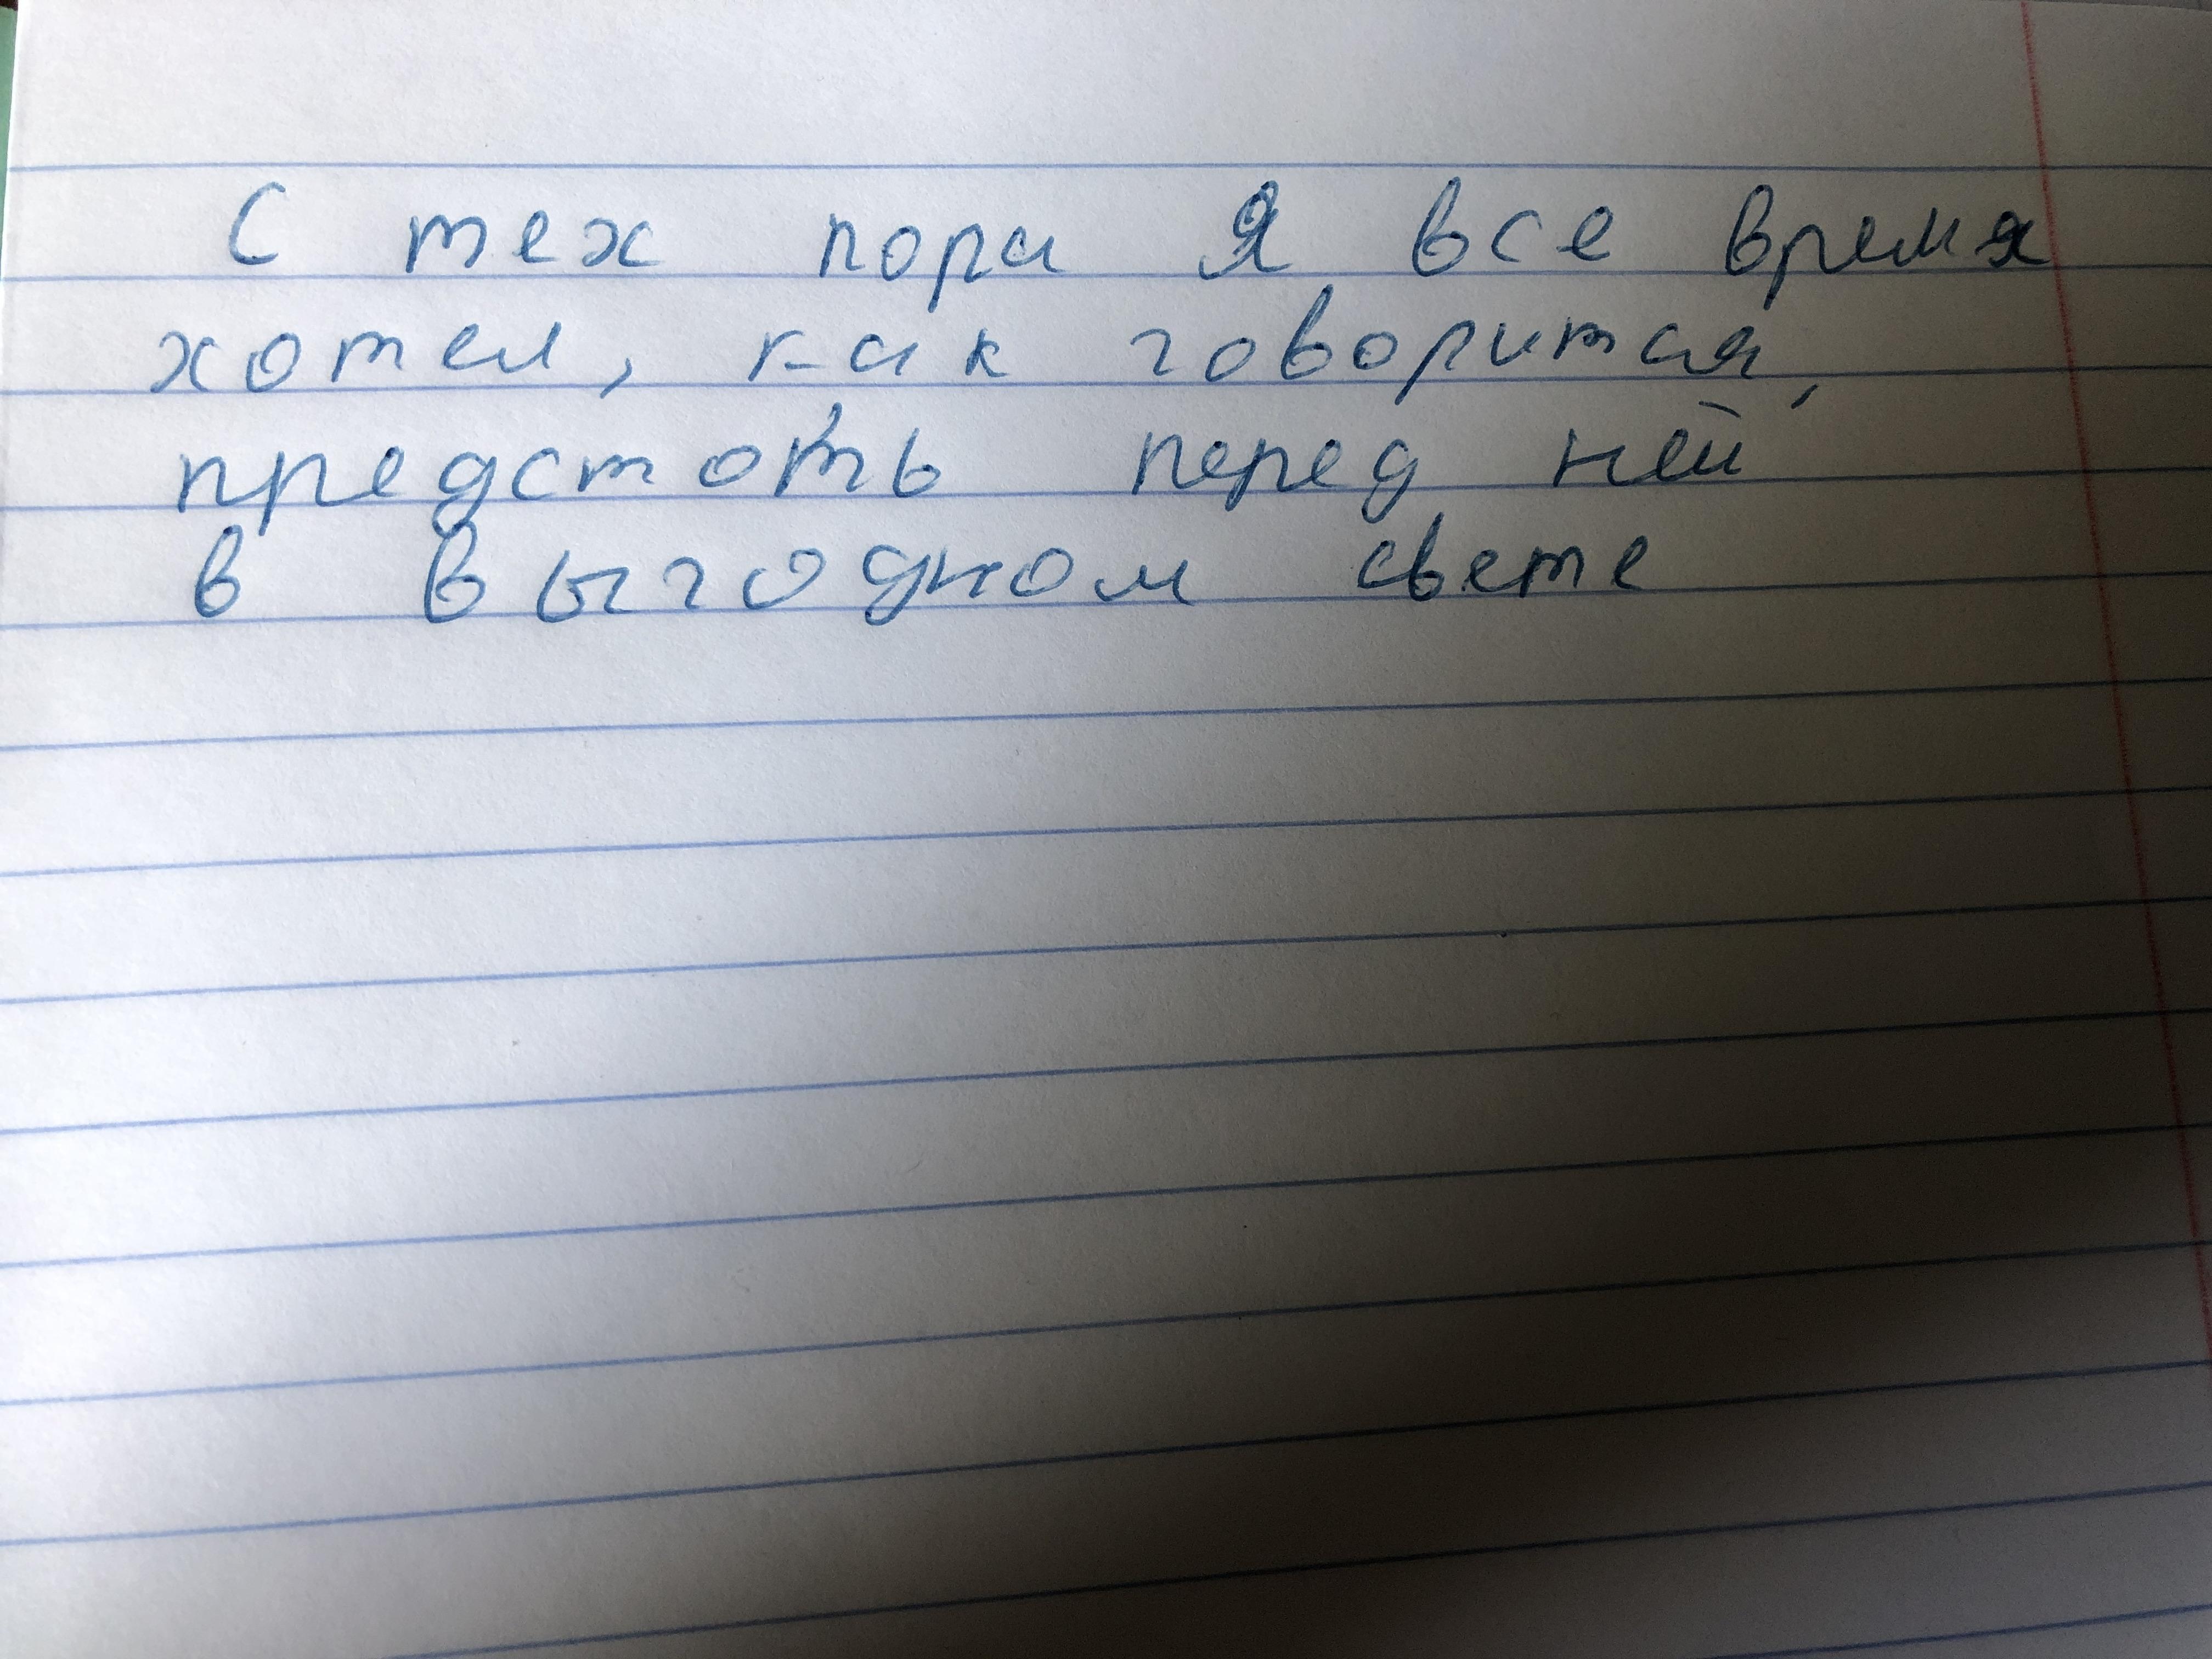 С тех пора я все время
хотел, как говорится,
предстоть перед ней
в выгодном свете